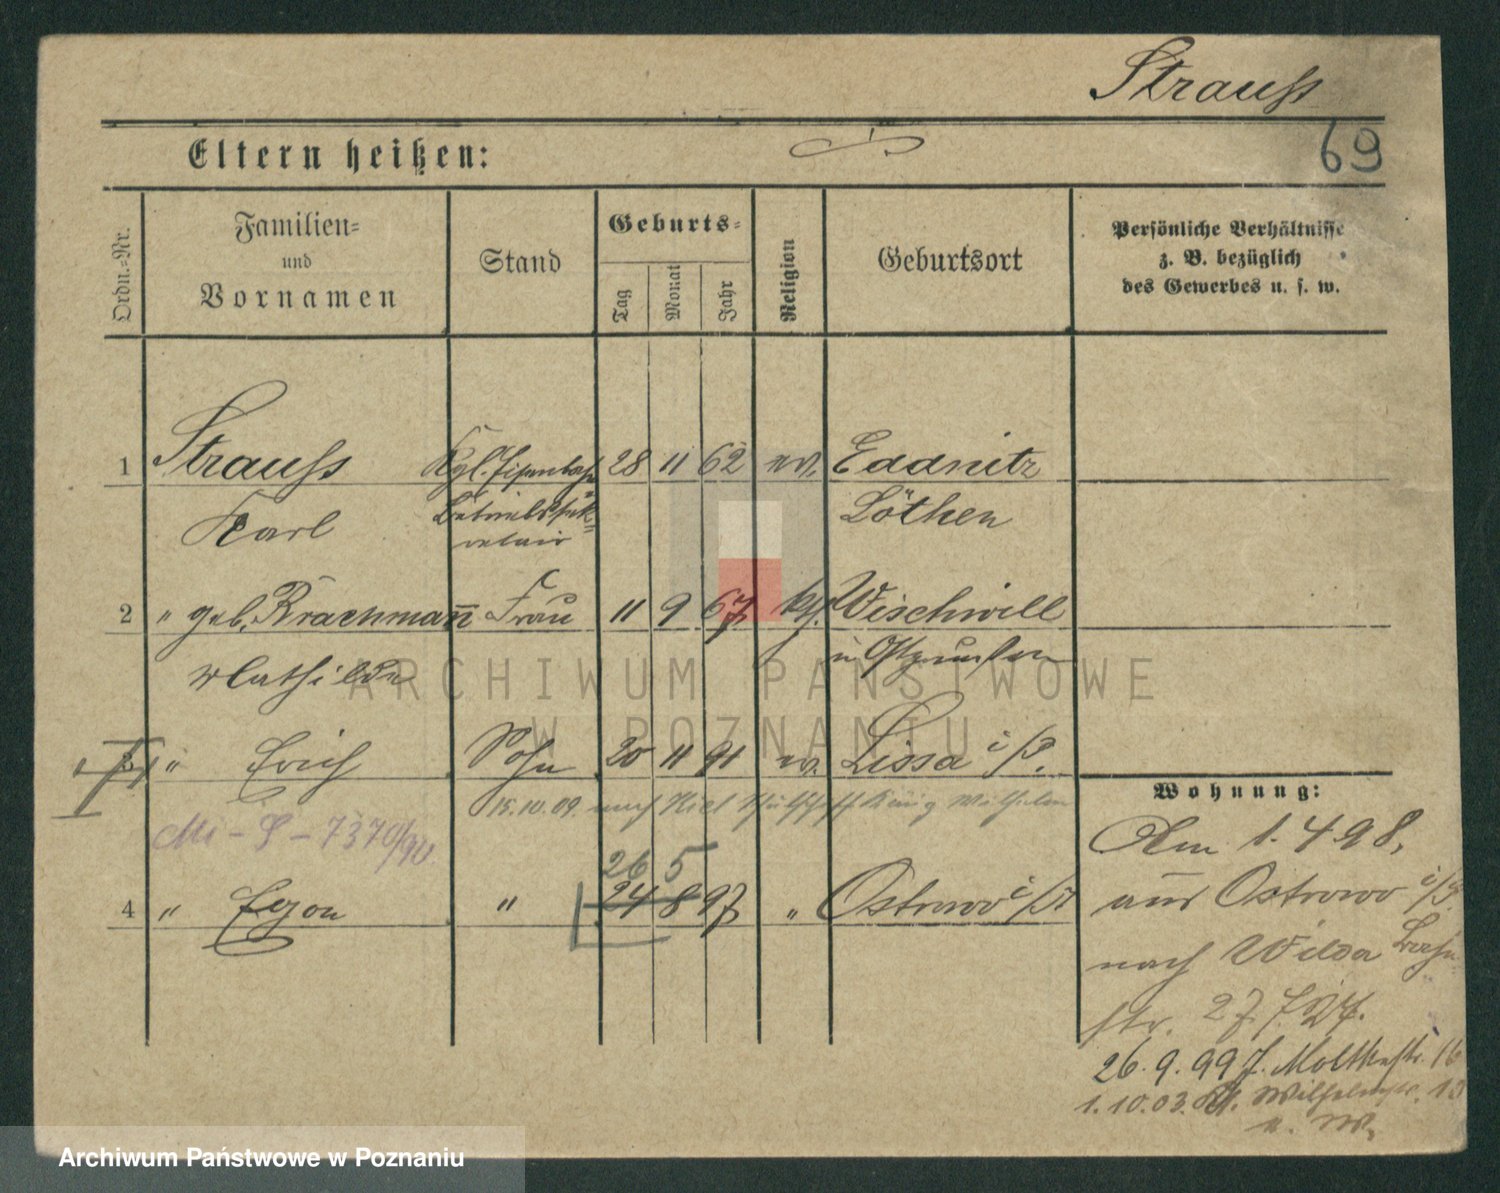 Strauss
69
Eltern heißen:
Ordn.-Nr.
Familien-
und
Vornamen
Stand
Geburts-
Tag
Monat
Jahr
Religion
Geburtsort
Persönliche Verhältnisse
z. B. bezüglich
des Gewerbes u. s. w.
1 Strauss Kgl. Eisenbahn 28 11 62 ev. Edderitz
Karl Betriebssek- Cöthen
retair
2 " geb. Brachman̄ Frau 11 9 67 Wischwill
Mathilde in Ostpreußen
3 " Erich Sohn 20 11 91 ev. Lissa i/P.
15.10.09. nach Kiel Schulschiff König Wilhelm
Mi - S - 7370/90
26 5
4 " Egon " 24 8 97 " Ostrowo i/P
Wohnung:
Am 1.4.98,
aus Ostrowo i/P.
nach Wilda Bahn
str. 27.
26.9.99 Moltkestr. 16
1.10.03. Wilhelmstr.
ARCHIWUM PAŃSTWOWE
W POZNANIU
Archiwum Państwowe w Poznaniu